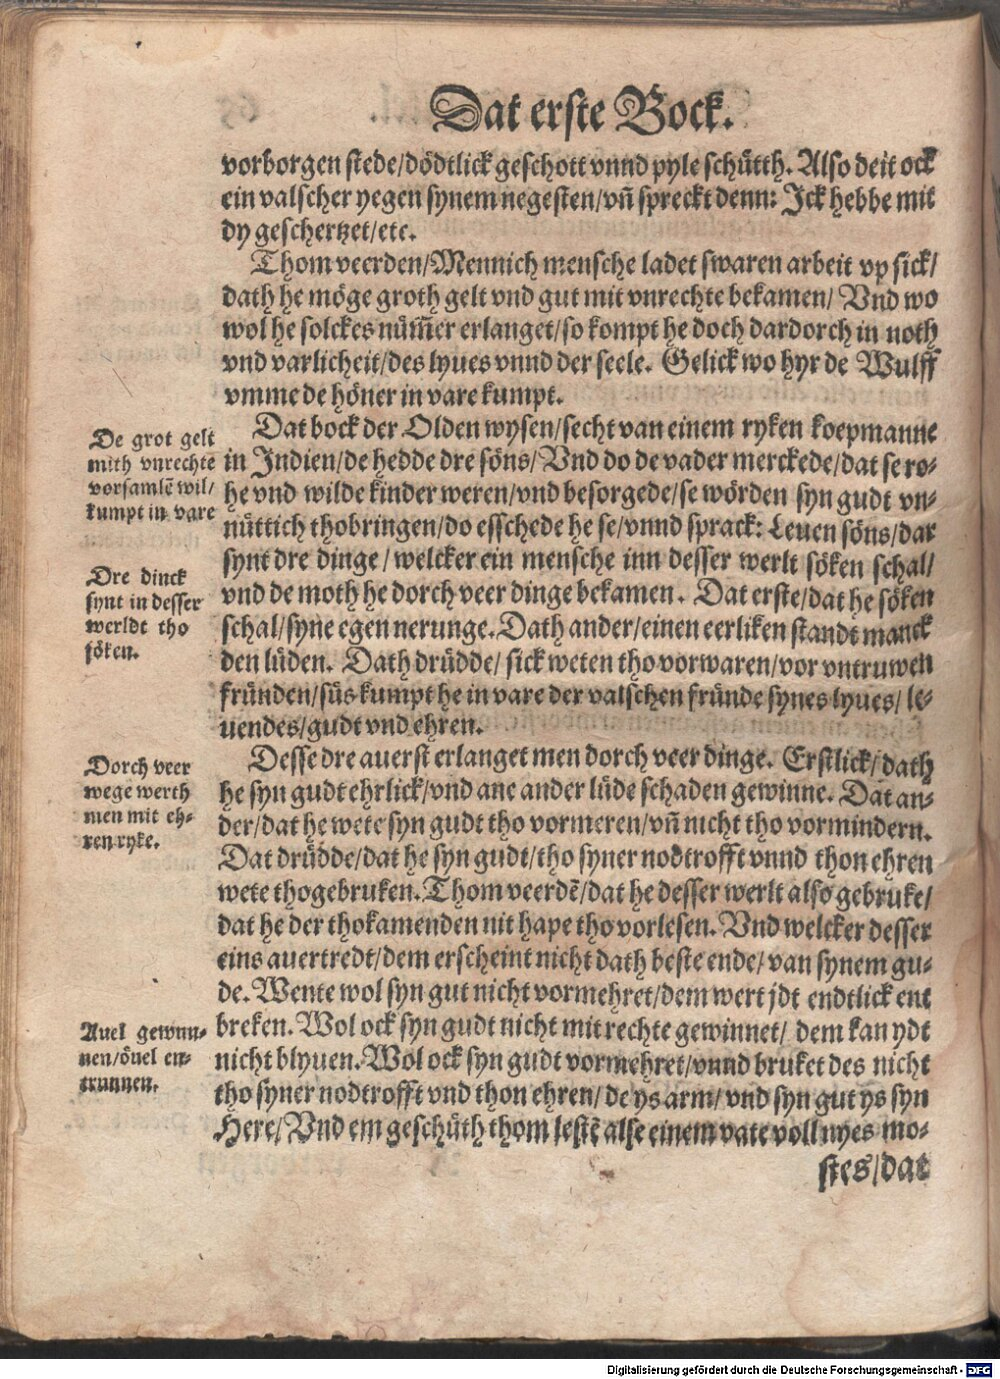 Dat erste Bock.
vorborgen stede/dödtlick geschott vnnd pyle schütth. Also deit ock
ein valscher yegen synem negesten/vñ spreckt denn: Jck hebbe mit
dy geschertzet/etc.
Thom veerden/Mennich mensche ladet swaren arbeit vp sick/
dath he möge groth gelt vnd gut mit vnrechte bekamen/ Vnd wo
wol he solckes nüm̃er erlanget/so kompt he doch dardorch in noth
vnd varlicheit/des lyues vnnd der seele. Gelick wo hyr de Wulff
vmme de höner in vare kumpt.
Dat bock der Olden wysen/secht van einem ryken koepmanne
in Jndien/de hedde dre söns/Vnd do de vader merckede/dat se ro-
he vnd wilde kinder weren/vnd besorgede/se wörden syn gudt vn-
nüttich thobringen/do esschede he se/vnnd sprack: Leuen söns/dar
synt dre dinge/welcker ein mensche inn desser werlt söken schal/
vnd de moth he dorch veer dinge bekamen. Dat erste/dat he söken
schal/syne egen nerunge. Dath ander/einen eerliken standt manck
den lüden. Dath drüdde/ sick weten tho vorwaren/vor vntruwen
fründen/süs kumpt he in vare der valschen fründe synes lyues/ le-
uendes/gudt vnd ehren.
Desse dre auerst erlanget men dorch veer dinge. Erstlick/dath
he syn gudt ehrlick/vnd ane ander lüde schaden gewinne. Dat an-
der/dat he wete syn gudt tho vormeren/vñ nicht tho vormindern.
Dat drüdde/dat he syn gudt/tho syner nodtrofft vnnd thon ehren
wete thogebruken. Thom veerdẽ/dat he desser werlt also gebruke/
dat he der thokamenden nit hape tho vorlesen. Vnd welcker desser
eins auertredt/dem erscheint nicht dath beste ende/van synem gu-
de. Wente wol syn gut nicht vormehret/dem wert jdt endtlick ent
breken. Wol ock syn gudt nicht mit rechte gewinnet/ dem kan ydt
nicht blyuen. Wol ock syn gudt vormehret/vnnd bruket des nicht
tho syner nodtrofft vnd thon ehren/de ys arm/vnd syn gut ys syn
Here/Vnd em geschüth thom lestẽ alse einem vate voll nyes mo-
stes/dat
De grot gelt
mith vnrechte
vorsamlẽ wil/
kumpt in vare
Dre dinck
synt in desser
werldt tho
söken.
Dorch veer
wege werth
men mit eh-
ren ryke.
Auel gewun-
nen/öuel en-
trunnen.
Digitalisierung gefördert durch die Deutsche Forschungsgemeinschaft - DFG